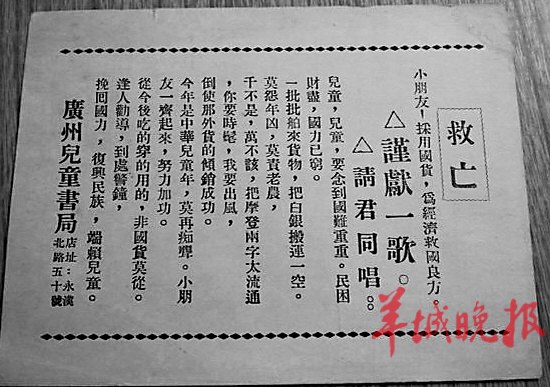 救亡
小朋友！採用國貨，爲經濟救國良方。
△謹獻一歌。
△請君同唱。
兒童，兒童，要念到國難重重。民困
財盡，國力已窮。
一批批舶來貨物，把白銀搬運一空。
莫怨年凶，莫責老農，
千不是，萬不該，把摩登兩字太流通
，你要時髦，我要出風，
倒使那外貨的傾銷成功。
今年是中華兒童年，莫再痴聾。小朋
友一齊起來，努力加功。
從今後吃的穿的用的，非國貨莫從。
逢人勸導，到處警鐘，
挽回國力，復興民族，端賴兒童。
廣州兒童書局
店址：永漢
北路五十號
羊城晚报